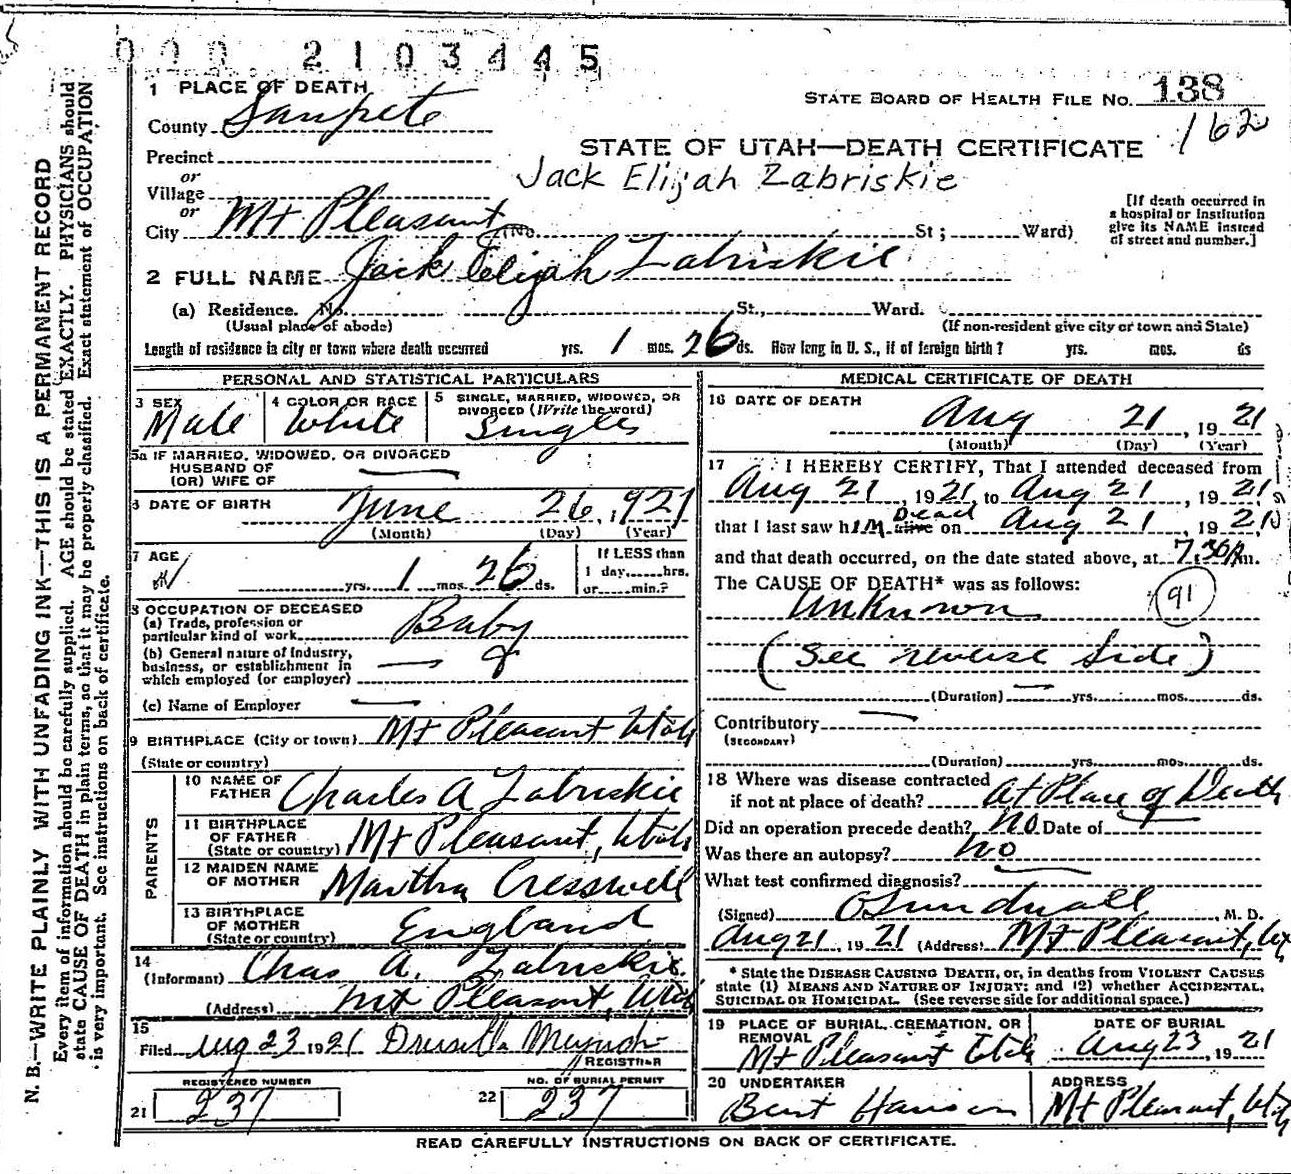 000 2103445
1 PLACE OF DEATH
STATE BOARD OF HEALTH FILE NO. 138
County Sanpete
162
Precinct
STATE OF UTAH—DEATH CERTIFICATE
or
Jack Elijah Zabriskie
Village
or
City Mt Pleasant (No. St; Ward)
[If death occurred in
a hospital or institution
give its NAME instead
of street and number.]
2 FULL NAME Jack Elijah Zabriskie
(a) Residence. No. St., Ward.
(Usual place of abode) (If non-resident give city or town and State)
Length of residence in city or town where death occurred yrs. 1 mos. 26 ds. How long in U. S., if of foreign birth? yrs. mos. ds
PERSONAL AND STATISTICAL PARTICULARS
3 SEX
Male
4 COLOR OR RACE
White
5 SINGLE, MARRIED, WIDOWED, OR
DIVORCED (Write the word)
Single
5a IF MARRIED, WIDOWED, OR DIVORCED
HUSBAND OF
(OR) WIFE OF
6 DATE OF BIRTH June 26, 1921
(Month) (Day) (Year)
7 AGE
yrs. 1 mos. 26 ds.
If LESS than
1 day,......hrs.
or......min.?
8 OCCUPATION OF DECEASED
(a) Trade, profession or
particular kind of work Baby
(b) General nature of Industry,
business, or establishment in
which employed (or employer)
(c) Name of Employer
9 BIRTHPLACE (City or town) Mt Pleasant Utah
(State or country)
PARENTS
10 NAME OF
FATHER Charles A Zabriskie
11 BIRTHPLACE
OF FATHER
(State or country) Mt Pleasant, Utah
12 MAIDEN NAME
OF MOTHER Martha Cresswell
13 BIRTHPLACE
OF MOTHER
(State or country) England
14
(Informant) Chas A. Zabriskie.
(Address) Mt Pleasant, Utah
15
Filed Aug 23 1921 Drusilla
REGISTRAR
REGISTERED NUMBER
21 237
NO. OF BURIAL PERMIT
22 237
MEDICAL CERTIFICATE OF DEATH
16 DATE OF DEATH
Aug 21, 1921
(Month) (Day) (Year)
17 I HEREBY CERTIFY, That I attended deceased from
Aug 21, 1921, to Aug 21, 1921
that I last saw him alive Dead on Aug 21, 1921
and that death occurred, on the date stated above, at 7:30 m.
The CAUSE OF DEATH* was as follows:
Unknown 91
(See reverse side)
(Duration) yrs. mos. ds.
Contributory
(SECONDARY)
(Duration) yrs. mos. ds.
18 Where was disease contracted
if not at place of death? At Place of Death
Did an operation precede death? No Date of
Was there an autopsy? No
What test confirmed diagnosis?
(Signed) O Sundwall, M. D.
Aug 21, 1921 (Address) Mt Pleasant, Ut
* State the DISEASE CAUSING DEATH, or, in deaths from VIOLENT CAUSES
state (1) MEANS AND NATURE OF INJURY; and (2) whether ACCIDENTAL,
SUICIDAL OR HOMICIDAL. (See reverse side for additional space.)
19 PLACE OF BURIAL, CREMATION, OR
REMOVAL
Mt Pleasant Utah
DATE OF BURIAL
Aug 23, 1921
20 UNDERTAKER
Bent Hansen
ADDRESS
Mt Pleasant, Utah
READ CAREFULLY INSTRUCTIONS ON BACK OF CERTIFICATE.
N. B.—WRITE PLAINLY WITH UNFADING INK—THIS IS A PERMANENT RECORD
Every item of information should be carefully supplied. AGE should be stated EXACTLY. PHYSICIANS should
state CAUSE OF DEATH in plain terms, so that it may be properly classified. Exact statement of OCCUPATION
is very important. See instructions on back of certificate.